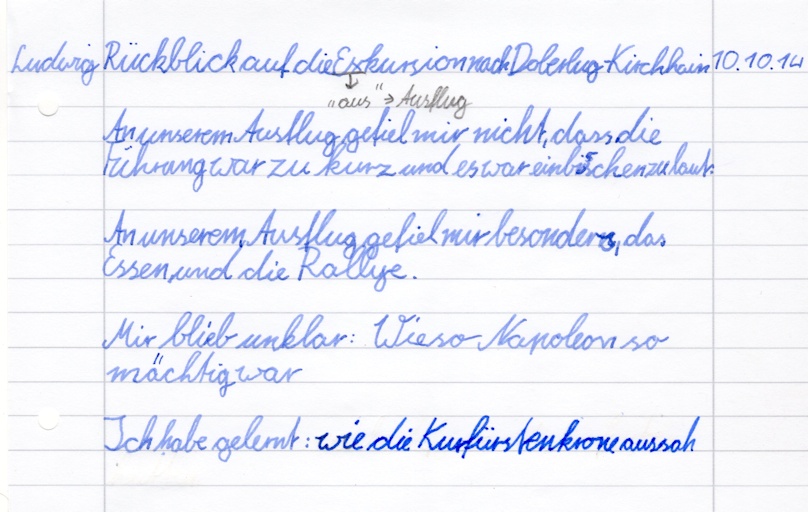 Ludwig Rückblick auf die Exkursion nach Doberlug-Kirchhain 10.10.14
"aus" → Ausflug
An unserem Ausflug gefiel mir nicht, dass die
Führung war zu kurz und es war ein bisschen zu laut.
An unserem Ausflug gefiel mir besonders, das
Essen, und die Rallye.
Mir blieb unklar: Wieso Napoleon so
mächtig war
Ich habe gelernt: wie die Kurfürstenkrone aussah